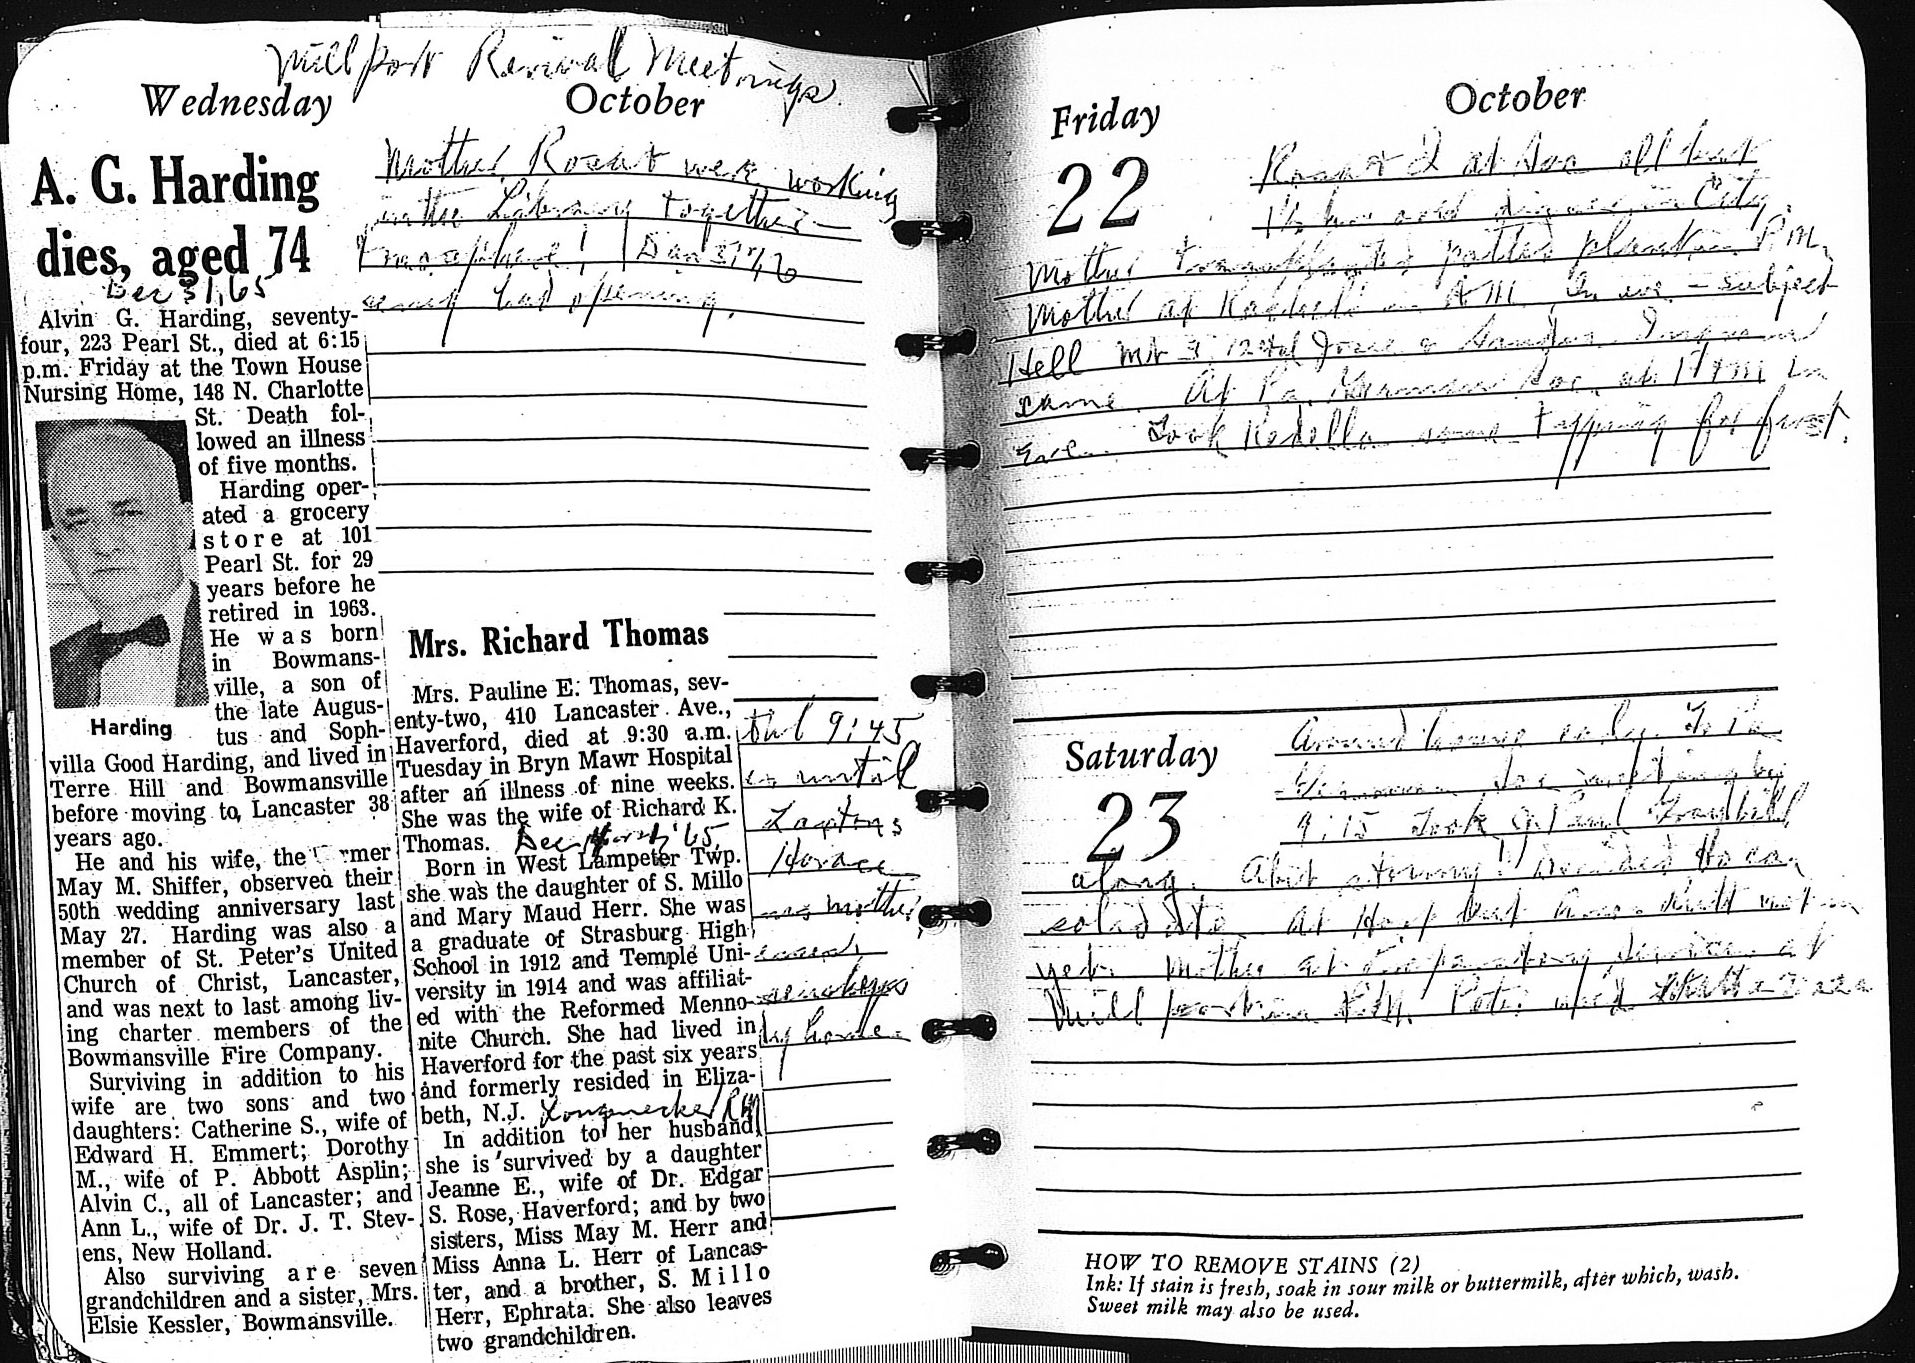 Millport Revival Meetings.
Wednesday
October
A. G. Harding
dies, aged 74
Dec 31, 65
Alvin G. Harding, seventy-
four, 223 Pearl St., died at 6:15
p.m. Friday at the Town House
Nursing Home, 148 N. Charlotte
St. Death fol-
lowed an illness
of five months.
Harding oper-
ated a grocery
store at 101
Pearl St. for 29
years before he
retired in 1963.
He was born
in Bowmans-
ville, a son of
the late Augus-
tus and Soph-
Harding
villa Good Harding, and lived in
Terre Hill and Bowmansville
before moving to Lancaster 38
years ago.
He and his wife, the mer
May M. Shiffer, observed their
50th wedding anniversary last
May 27. Harding was also a
member of St. Peter's United
Church of Christ, Lancaster,
and was next to last among liv-
ing charter members of the
Bowmansville Fire Company.
Surviving in addition to his
wife are two sons and two
daughters: Catherine S., wife of
Edward H. Emmert; Dorothy
M., wife of P. Abbott Asplin;
Alvin C., all of Lancaster; and
Ann L., wife of Dr. J. T. Stev-
ens, New Holland.
Also surviving are seven
grandchildren and a sister, Mrs.
Elsie Kessler, Bowmansville.
Mother, were working
in the Library together
bad opening.
Mrs. Richard Thomas
Mrs. Pauline E. Thomas, sev-
enty-two, 410 Lancaster Ave.,
Haverford, died at 9:30 a.m.
Tuesday in Bryn Mawr Hospital
after an illness of nine weeks.
She was the wife of Richard K.
Thomas. Dec '65
Born in West Lampeter Twp.
she was the daughter of S. Millo
and Mary Maud Herr. She was
a graduate of Strasburg High
School in 1912 and Temple Uni-
versity in 1914 and was affiliat-
ed with the Reformed Menno-
nite Church. She had lived in
Haverford for the past six years
and formerly resided in Eliza-
beth, N.J. Longnecker RM
In addition to her husband,
she is survived by a daughter
Jeanne E., wife of Dr. Edgar
S. Rose, Haverford; and by two
sisters, Miss May M. Herr and
Miss Anna L. Herr of Lancas-
ter, and a brother, S. Millo
Herr, Ephrata. She also leaves
two grandchildren.
9:45
until
Horace
mother
home
Friday
October
22
I at all but
dinner in City.
Mother transplanted plants in P.M.
Mother at in AM. In eve - subject
Hell
same. At Pa. German Soc. at in
Eve. Took some topping for
Saturday
23
Around house early. To Pa
German Soc meeting by
9:15 Took Paul Graybill
along. A bit stormy! Decided to con
solidate. at but not in
yet. Mother at Preparatory Services at
Millport in P.M. Pete
HOW TO REMOVE STAINS (2)
Ink: If stain is fresh, soak in sour milk or buttermilk, after which, wash.
Sweet milk may also be used.